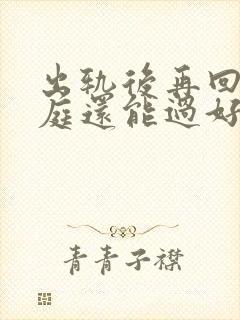 出轨後再回
庭還能過好
青青子襟